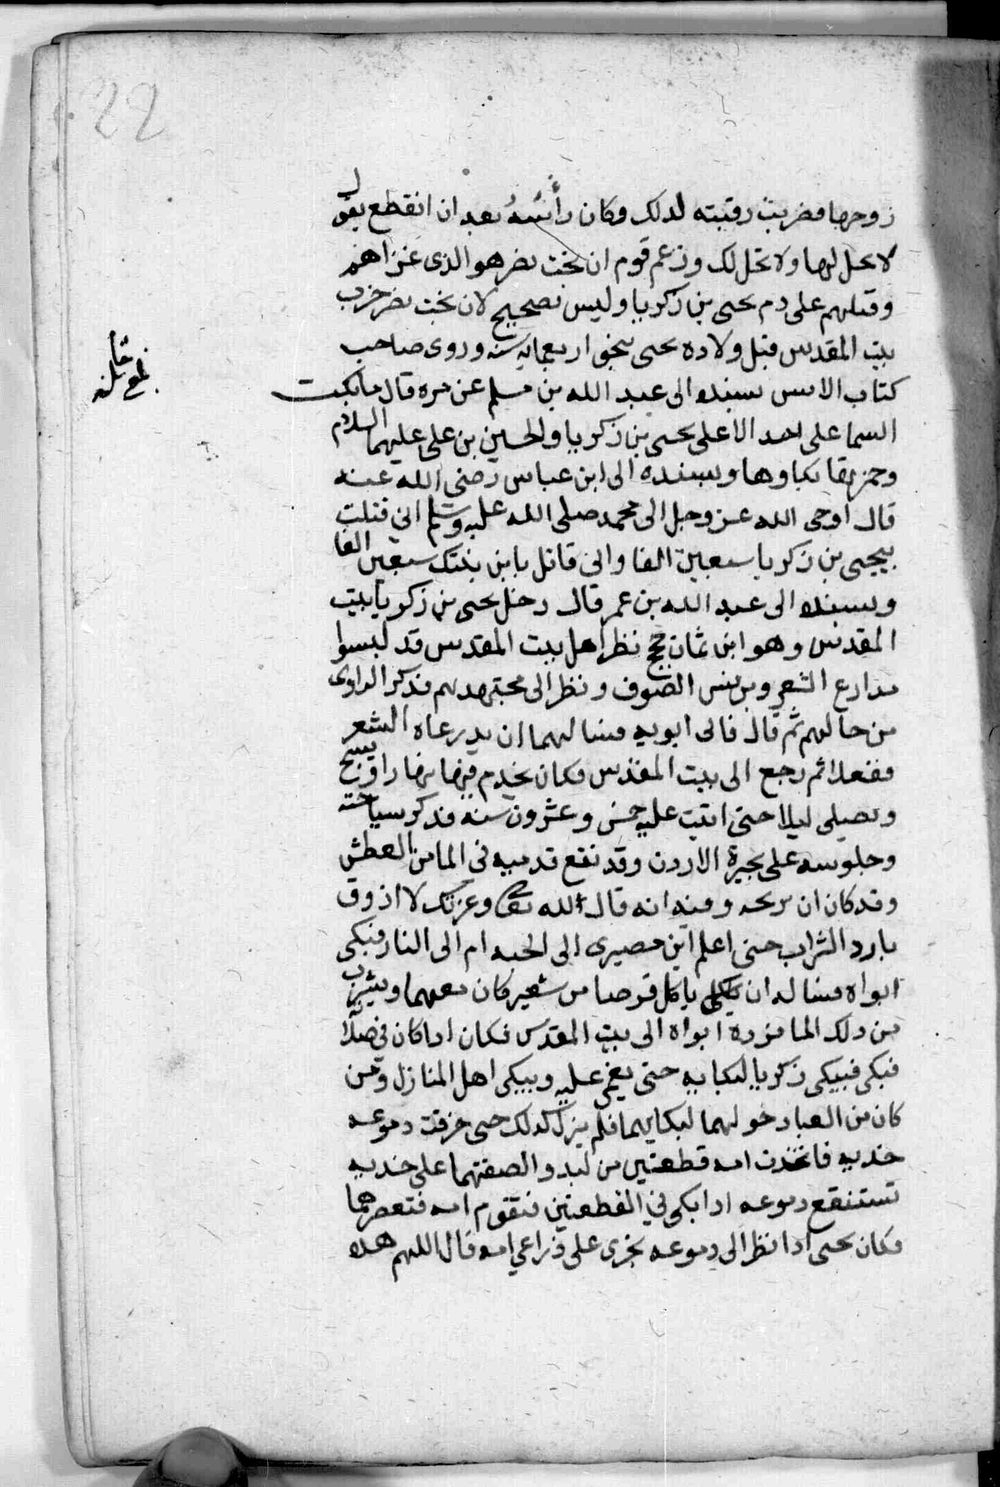 22
زوجها فضربت رقبته لذلك وكان رأسه بعد ان انقطع يقول
لا تحل لها ولا تحل لك وزعم قوم ان بخت نصر هو الذى غزاهم
وقتلهم على دم يحيى بن زكريا وليس بصحيح لان بخت نصر خرب
بيت المقدس قبل ولادة يحيى بنحو اربعماية سنة وروى صاحب
كتاب الانس بسنده الى عبد الله بن مسلم عن مره قال ما بكت
السما على احد الا على يحيى بن زكريا والحسين بن على عليهما السلام
وحمرتها بكاوها وبسنده الى ابن عباس رضى الله عنه
قال اوحى الله عز وجل الى محمد صلى الله عليه وسلم انى قتلت
بيحيى بن زكريا سبعين الفا وانى قاتل بابن بنتك سبعين الفا
وبسنده الى عبد الله بن عمر قال دخل يحيى بن زكريا بيت
المقدس وهو ابن ثمان حجج نظر اهل بيت المقدس قد لبسوا
مدارع الشعر وبرنس الصوف ونظر الى مجتهديهم فذكر الراوى
من حالهم ثم قال فاتى ابويه فسالهما ان يدرعاه الشعر
ففعلا ثم رجع الى بيت المقدس فكان يخدم فيها نهارا ويسبح
ويصلى ليلا حتى اتت عليه خمس وعشرون سنة فذكر سياحته
وجلوسه على بحيرة الاردن وقد نقع قدميه فى الما من العطش
وقد كان ان يذبحه ومنه انه قال الله تعالى وعزتك لا اذوق
بارد الشراب حتى اعلم اين مصيرى الى الجنة ام الى النار فبكى
ابواه فسالاه ان ياكل قرصا من شعير كان معهما ويشرب
من ذلك الما فرده ابواه الى بيت المقدس فكان اذا كان فى صلاة
فبكى فيبكى زكريا لبكايه حتى يغمى عليه ويبكى اهل المنازل ومن
كان من العباد حولهما لبكايهما فلم يزل كذلك حتى خرقت دموعه
خديه فاتخذت امه قطعتين من لبد والصقتهما على خديه
تستنقع دموعه اذا بكى في القطعتين فتقوم امه فتعصرهما
فكان يحيى اذا نظر الى دموعه تجرى على ذراعي امه قال اللهم هذه